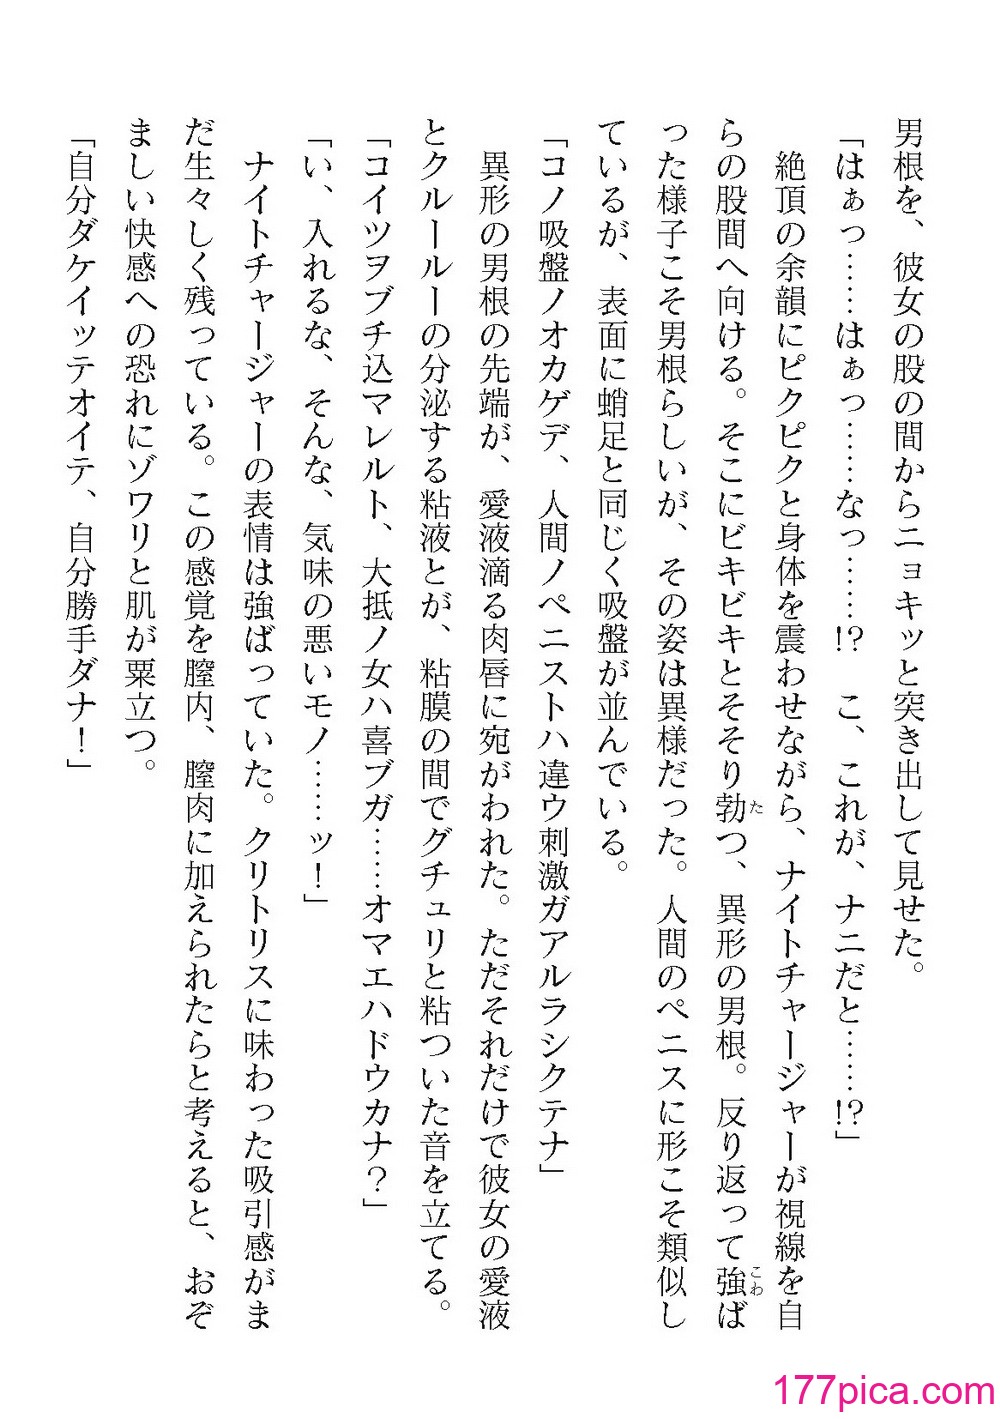 男根を、彼女の股の間からニョキッと突き出して見せた。
「はぁっ……はぁっ……なっ……!?　こ、これが、ナニだと……!?」
　絶頂の余韻にピクピクと身体を震わせながら、ナイトチャージャーが視線を自
らの股間へ向ける。そこにビキビキとそそり勃たつ、異形の男根。反り返って強こわば
った様子こそ男根らしいが、その姿は異様だった。人間のペニスに形こそ類似し
ているが、表面に蛸足と同じく吸盤が並んでいる。
「コノ吸盤ノオカゲデ、人間ノペニストハ違ウ刺激ガアルラシクテナ」
　異形の男根の先端が、愛液滴る肉唇に宛がわれた。ただそれだけで彼女の愛液
とクルールーの分泌する粘液とが、粘膜の間でグチュリと粘ついた音を立てる。
「コイツヲブチ込マレルト、大抵ノ女ハ喜ブガ……オマエハドウカナ？」
「い、入れるな、そんな、気味の悪いモノ……ッ！」
　ナイトチャージャーの表情は強ばっていた。クリトリスに味わった吸引感がま
だ生々しく残っている。この感覚を膣内、膣肉に加えられたらと考えると、おぞ
ましい快感への恐れにゾワリと肌が粟立つ。
「自分ダケイッテオイテ、自分勝手ダナ！」
177pica.com